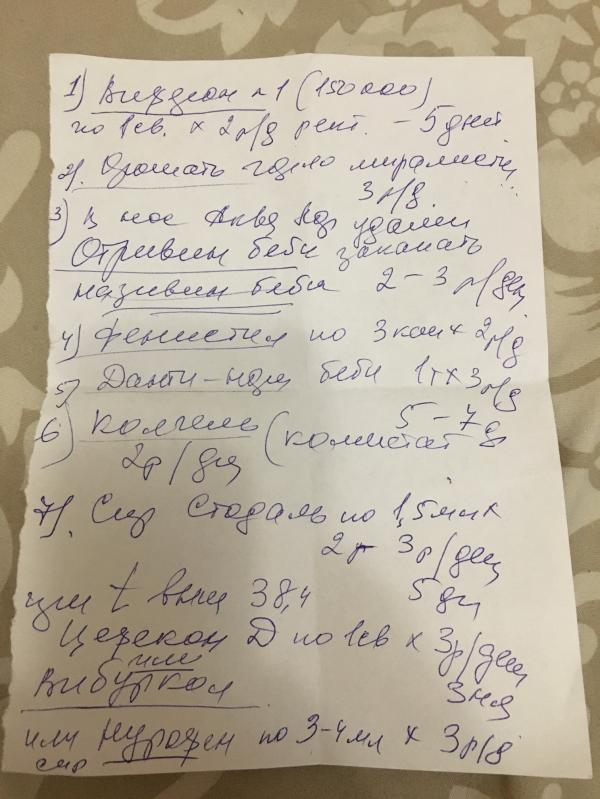 1) Виферон №1 (150000)
по 1св. × 2р/д рект. – 5 дней
2). Орошать горло мирамисти
3 р/д.
3) В нос Аква удалем
Отривин беби закапать
називин беби 2–3 р/ден
4) Фенистил по 3 кап × 2р/д
5) Данти-норм беби 1т × 3р/д
6) Калгель (камистат 5–7 д
2р/ден
7). Сир Стодаль по 1,5 мл ×
2- 3р/ден
при t выше 38,4 5 дн
Цефекон Д по 1св × 3р/ден
или
Вибуркол 3 дня
или Нурофен по 3-4 мл × 3р/д
сир